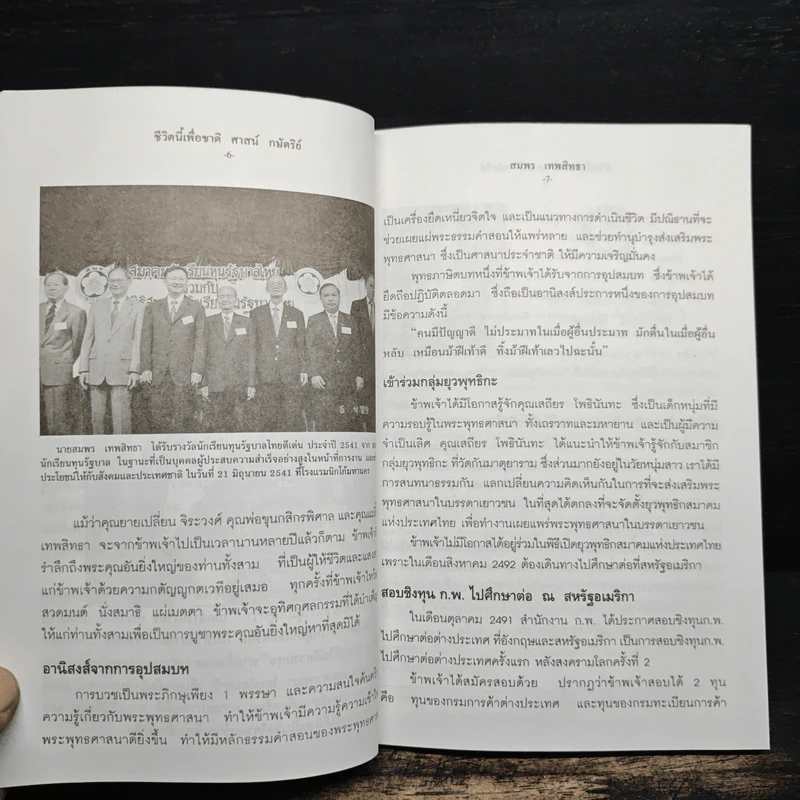 ชีวิตนี้เพื่อชาติ ศาสน์ กษัตริย์
-6-
สมาคม เรียนทุนรัฐบาลไทย
วมกับ
นายสมพร เทพสิทธา ได้รับรางวัลนักเรียนทุนรัฐบาลไทยดีเด่น ประจำปี 2541 จาก
นักเรียนทุนรัฐบาล ในฐานะที่เป็นบุคคลผู้ประสบความสำเร็จอย่างสูงในหน้าที่การงาน และ
ประโยชน์ให้กับสังคมและประเทศชาติ ในวันที่ 21 มิถุนายน 2541 ที่โรงแรมนิกโก้มหานคร
แม้ว่าคุณยายเปลี่ยน จิระวงศ์ คุณพ่อขุนกสิกรพิศาล และคุณแม่
เทพสิทธา จะจากข้าพเจ้าไปเป็นเวลานานหลายปีแล้วก็ตาม ข้าพเจ้า
รำลึกถึงพระคุณอันยิ่งใหญ่ของท่านทั้งสาม ที่เป็นผู้ให้ชีวิตและแสง
แก่ข้าพเจ้าด้วยความกตัญญูกตเวทีอยู่เสมอ ทุกครั้งที่ข้าพเจ้าไหว้
สวดมนต์ นั่งสมาธิ แผ่เมตตา ข้าพเจ้าจะอุทิศกุศลกรรมที่ได้บำเพ็ญ
ให้แก่ท่านทั้งสามเพื่อเป็นการบูชาพระคุณอันยิ่งใหญ่หาที่สุดมิได้
อานิสงส์จากการอุปสมบท
การบวชเป็นพระภิกษุเพียง 1 พรรษา และความสนใจค้นคว้า
ความรู้เกี่ยวกับพระพุทธศาสนา ทำให้ข้าพเจ้ามีความรู้ความเข้าใจ
พระพุทธศาสนาดียิ่งขึ้น ทำให้มีหลักธรรมคำสอนของพระพุทธศาส
สมพร เทพสิทธา
-7-
เป็นเครื่องยึดเหนี่ยวจิตใจ และเป็นแนวทางการดำเนินชีวิต มีปณิธานที่จะ
ช่วยเผยแผ่พระธรรมคำสอนให้แพร่หลาย และช่วยทำนุบำรุงส่งเสริมพระ
พุทธศาสนา ซึ่งเป็นศาสนาประจำชาติ ให้มีความเจริญมั่นคง
พุทธภาษิตบทหนึ่งที่ข้าพเจ้าได้รับจากการอุปสมบท ซึ่งข้าพเจ้าได้
ยึดถือปฏิบัติตลอดมา ซึ่งถือเป็นอานิสงส์ประการหนึ่งของการอุปสมบท
มีข้อความดังนี้
"คนมีปัญญาดี ไม่ประมาทในเมื่อผู้อื่นประมาท มักตื่นในเมื่อผู้อื่น
หลับ เหมือนม้าฝีเท้าดี ทิ้งม้าฝีเท้าเลวไปฉะนั้น"
เข้าร่วมกลุ่มยุวพุทธิกะ
ข้าพเจ้าได้มีโอกาสรู้จักคุณเสถียร โพธินันทะ ซึ่งเป็นเด็กหนุ่มที่มี
ความรอบรู้ในพระพุทธศาสนา ทั้งเถรวาทและมหายาน และเป็นผู้มีความ
จำเป็นเลิศ คุณเสถียร โพธินันทะ ได้แนะนำให้ข้าพเจ้ารู้จักกับสมาชิก
กลุ่มยุวพุทธิกะ ที่วัดกันมาตุยาราม ซึ่งส่วนมากยังอยู่ในวัยหนุ่มสาว เราได้มี
การสนทนาธรรมกัน แลกเปลี่ยนความคิดเห็นกันในการที่จะส่งเสริมพระ
พุทธศาสนาในบรรดาเยาวชน ในที่สุดได้ตกลงที่จะจัดตั้งยุวพุทธิกสมาคม
แห่งประเทศไทย เพื่อทำงานเผยแพร่พระพุทธศาสนาในบรรดาเยาวชน
ข้าพเจ้าไม่มีโอกาสได้อยู่ร่วมในพิธีเปิดยุวพุทธิกสมาคมแห่งประเทศไทย
เพราะในเดือนสิงหาคม 2492 ต้องเดินทางไปศึกษาต่อที่สหรัฐอเมริกา
สอบชิงทุน ก.พ. ไปศึกษาต่อ ณ สหรัฐอเมริกา
ในเดือนตุลาคม 2491 สำนักงาน ก.พ. ได้ประกาศสอบชิงทุนก.พ.
ไปศึกษาต่อต่างประเทศ ที่อังกฤษและสหรัฐอเมริกา เป็นการสอบชิงทุนก.พ.
ไปศึกษาต่อต่างประเทศครั้งแรก หลังสงครามโลกครั้งที่ 2
ข้าพเจ้าได้สมัครสอบด้วย ปรากฏว่าข้าพเจ้าสอบได้ 2 ทุน
คือ ทุนของกรมการค้าต่างประเทศ และทุนของกรมทะเบียนการค้า